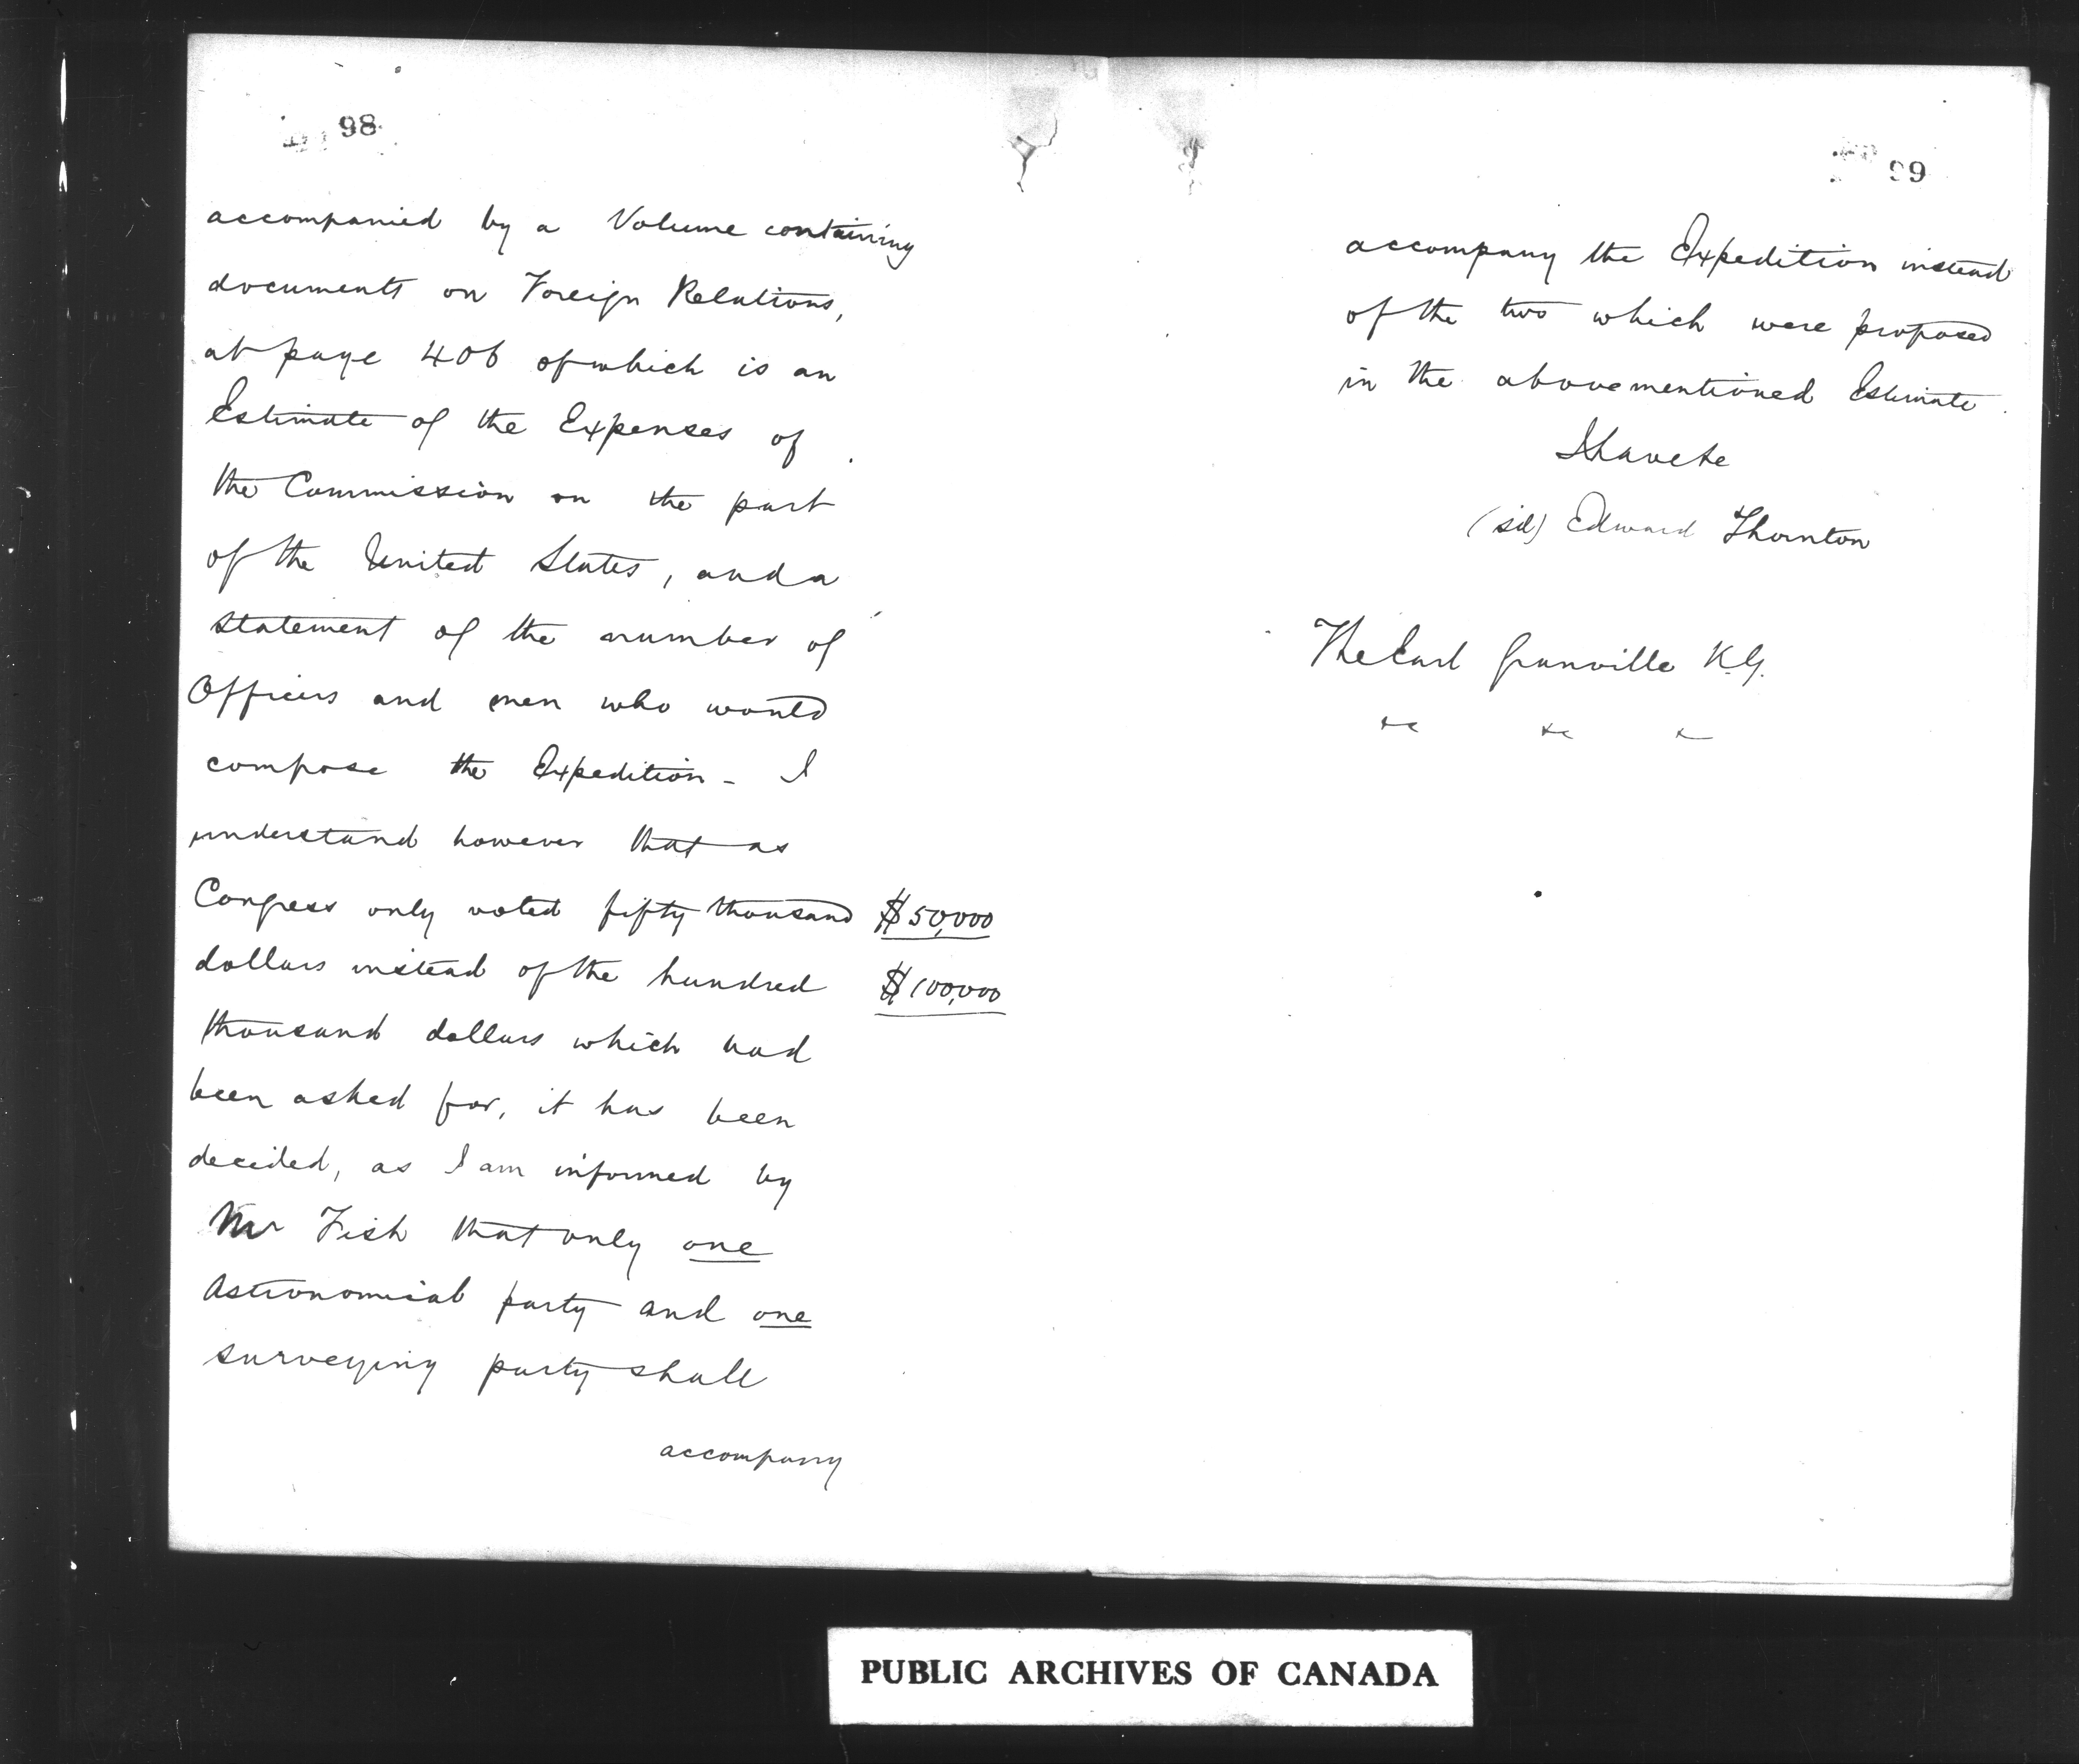 98
accompanied by a Volume containing
documents on Foreign Relations,
at page 406 of which is an
Estimate of the Expenses of
the Commission on the part
of the United States, and a
statement of the number of
Officers and men who would
compose the Expedition - I
understand however that as
Congress only voted fifty thousand $50,000
dollars instead of the hundred $100,000
thousand dollars which had
been asked for, it has been
decided, as I am informed by
Mr Fish that only one
Astronomical party and one
surveying party shall
accompany
99
accompany the Expedition instead
of the two which were proposed
in the abovementioned Estimate.
I have &c
(sd) Edward Thornton
The Earl Granville K.G.
&c &c &c
PUBLIC ARCHIVES OF CANADA